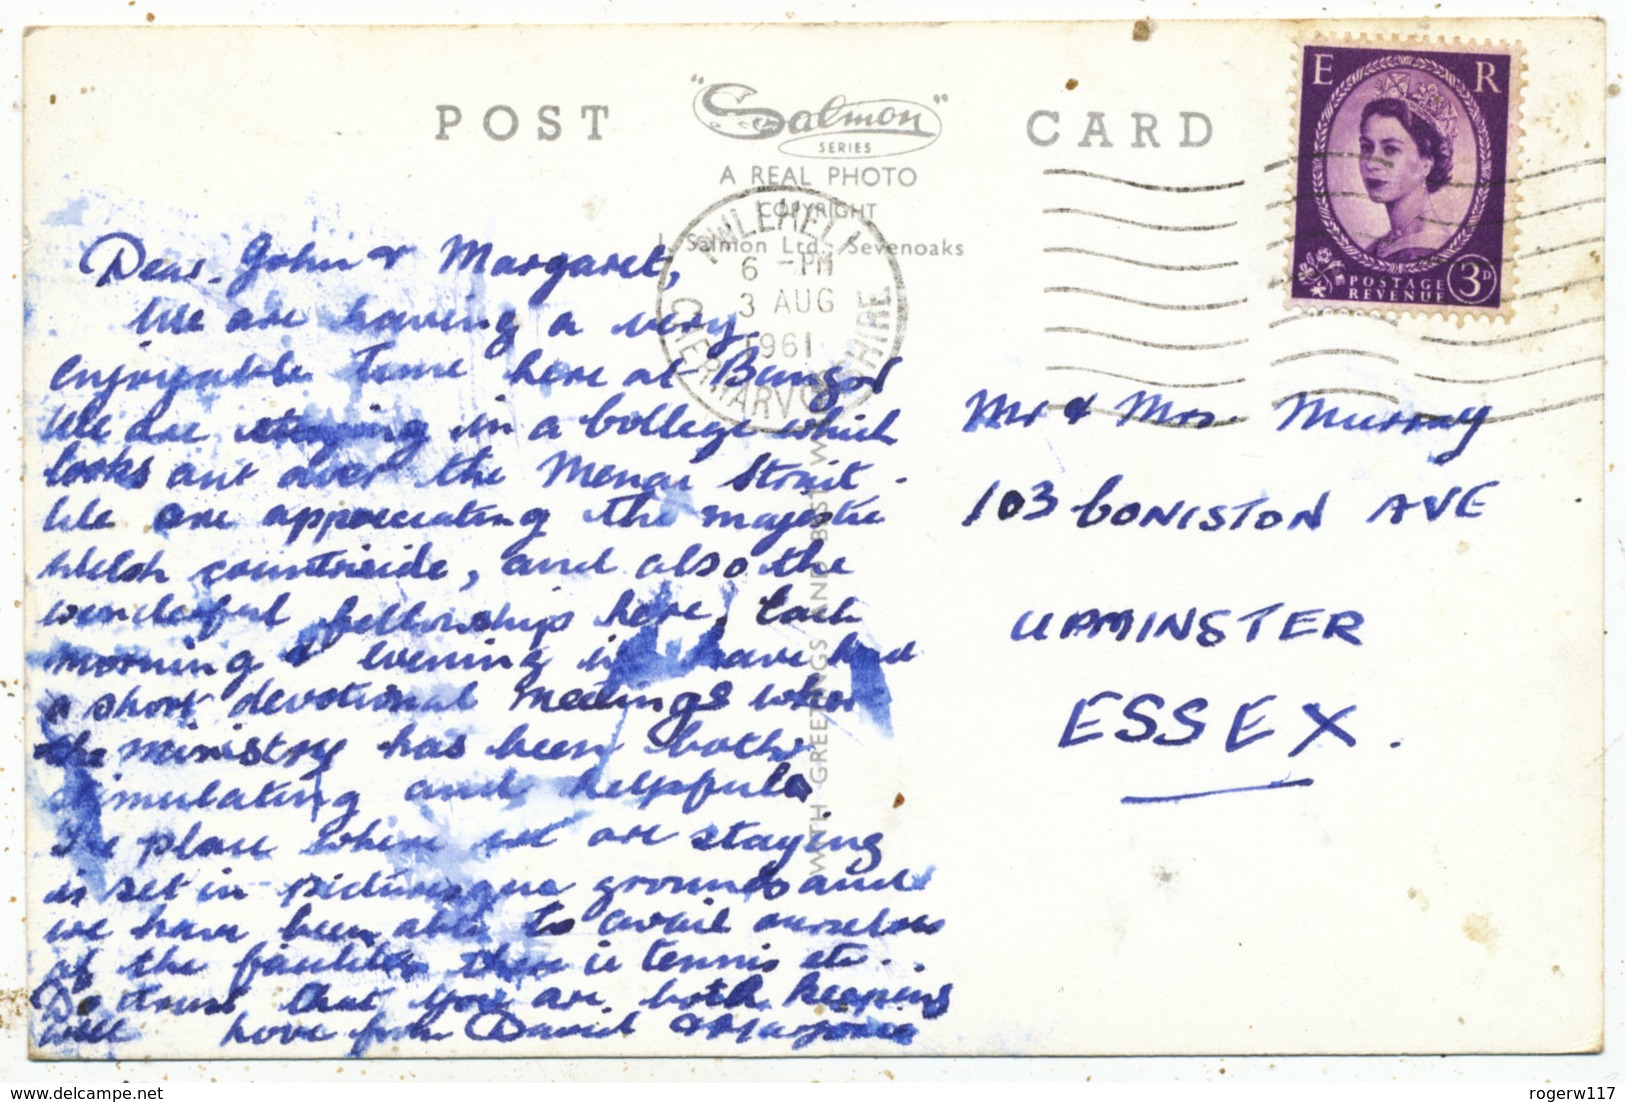 POST CARD
"Salmon"
SERIES
A REAL PHOTO
COPYRIGHT
J. Salmon Ltd., Sevenoaks
E R
POSTAGE
REVENUE
3D
PWLLHELI
6 - PM
3 AUG
1961
CAERNARVONSHIRE
WITH GREETINGS AND BEST WISHES
Dear John & Margaret,
We are having a very
enjoyable time here at Bangor
We are staying in a College which
looks out over the Menai Strait.
We are appreciating the majestic
Welsh countrieside, and also the
wonderful fellowships here. Each
morning & evening we have had
a short devotional meetings where
the ministry has been both
stimulating and helpful.
The place where we are staying
is set in picturesque grounds and
we have been able to avail ourselves
of the facilities there ie tennis etc..
Do trust that you are both keeping
well Love from David & Marjorie
Mr & Mrs Murray
103 CONISTON AVE
UPMINSTER
ESSEX.
delcampe.net
rogerw117